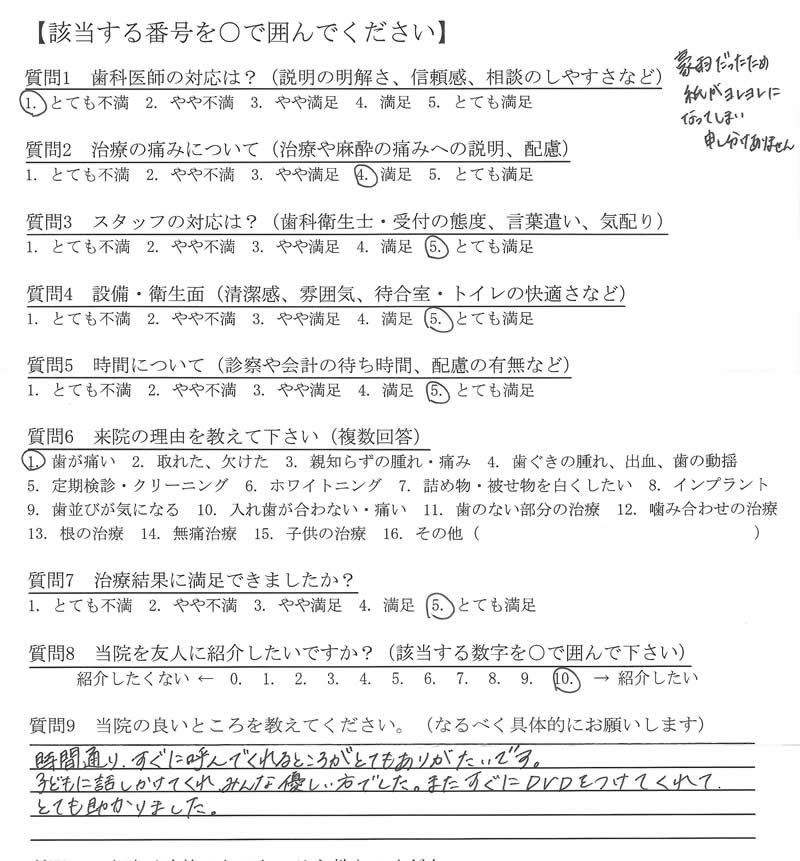 【該当する番号を〇で囲んでください】
質問1　歯科医師の対応は？（説明の明解さ、信頼感、相談のしやすさなど）
1. とても不満　2. やや不満　3. やや満足　4. 満足　5. とても満足
豪雨だったため
私がヨレヨレに
なってしまい
申し分けありません
質問2　治療の痛みについて（治療や麻酔の痛みへの説明、配慮）
1. とても不満　2. やや不満　3. やや満足　4. 満足　5. とても満足
質問3　スタッフの対応は？（歯科衛生士・受付の態度、言葉遣い、気配り）
1. とても不満　2. やや不満　3. やや満足　4. 満足　5. とても満足
質問4　設備・衛生面（清潔感、雰囲気、待合室・トイレの快適さなど）
1. とても不満　2. やや不満　3. やや満足　4. 満足　5. とても満足
質問5　時間について（診察や会計の待ち時間、配慮の有無など）
1. とても不満　2. やや不満　3. やや満足　4. 満足　5. とても満足
質問6　来院の理由を教えて下さい（複数回答）
1. 歯が痛い　2. 取れた、欠けた　3. 親知らずの腫れ・痛み　4. 歯ぐきの腫れ、出血、歯の動揺
5. 定期検診・クリーニング　6. ホワイトニング　7. 詰め物・被せ物を白くしたい　8. インプラント
9. 歯並びが気になる　10. 入れ歯が合わない・痛い　11. 歯のない部分の治療　12. 噛み合わせの治療
13. 根の治療　14. 無痛治療　15. 子供の治療　16. その他（　　　　　　　　　　）
質問7　治療結果に満足できましたか？
1. とても不満　2. やや不満　3. やや満足　4. 満足　5. とても満足
質問8　当院を友人に紹介したいですか？（該当する数字を〇で囲んで下さい）
紹介したくない ← 0. 1. 2. 3. 4. 5. 6. 7. 8. 9. 10. → 紹介したい
質問9　当院の良いところを教えてください。（なるべく具体的にお願いします）
時間通り、すぐに呼んでくれるところがとてもありがたいです。
子どもに話しかけてくれ、みんな優しい方でした。またすぐにDVDをつけてくれて、
とても助かりました。